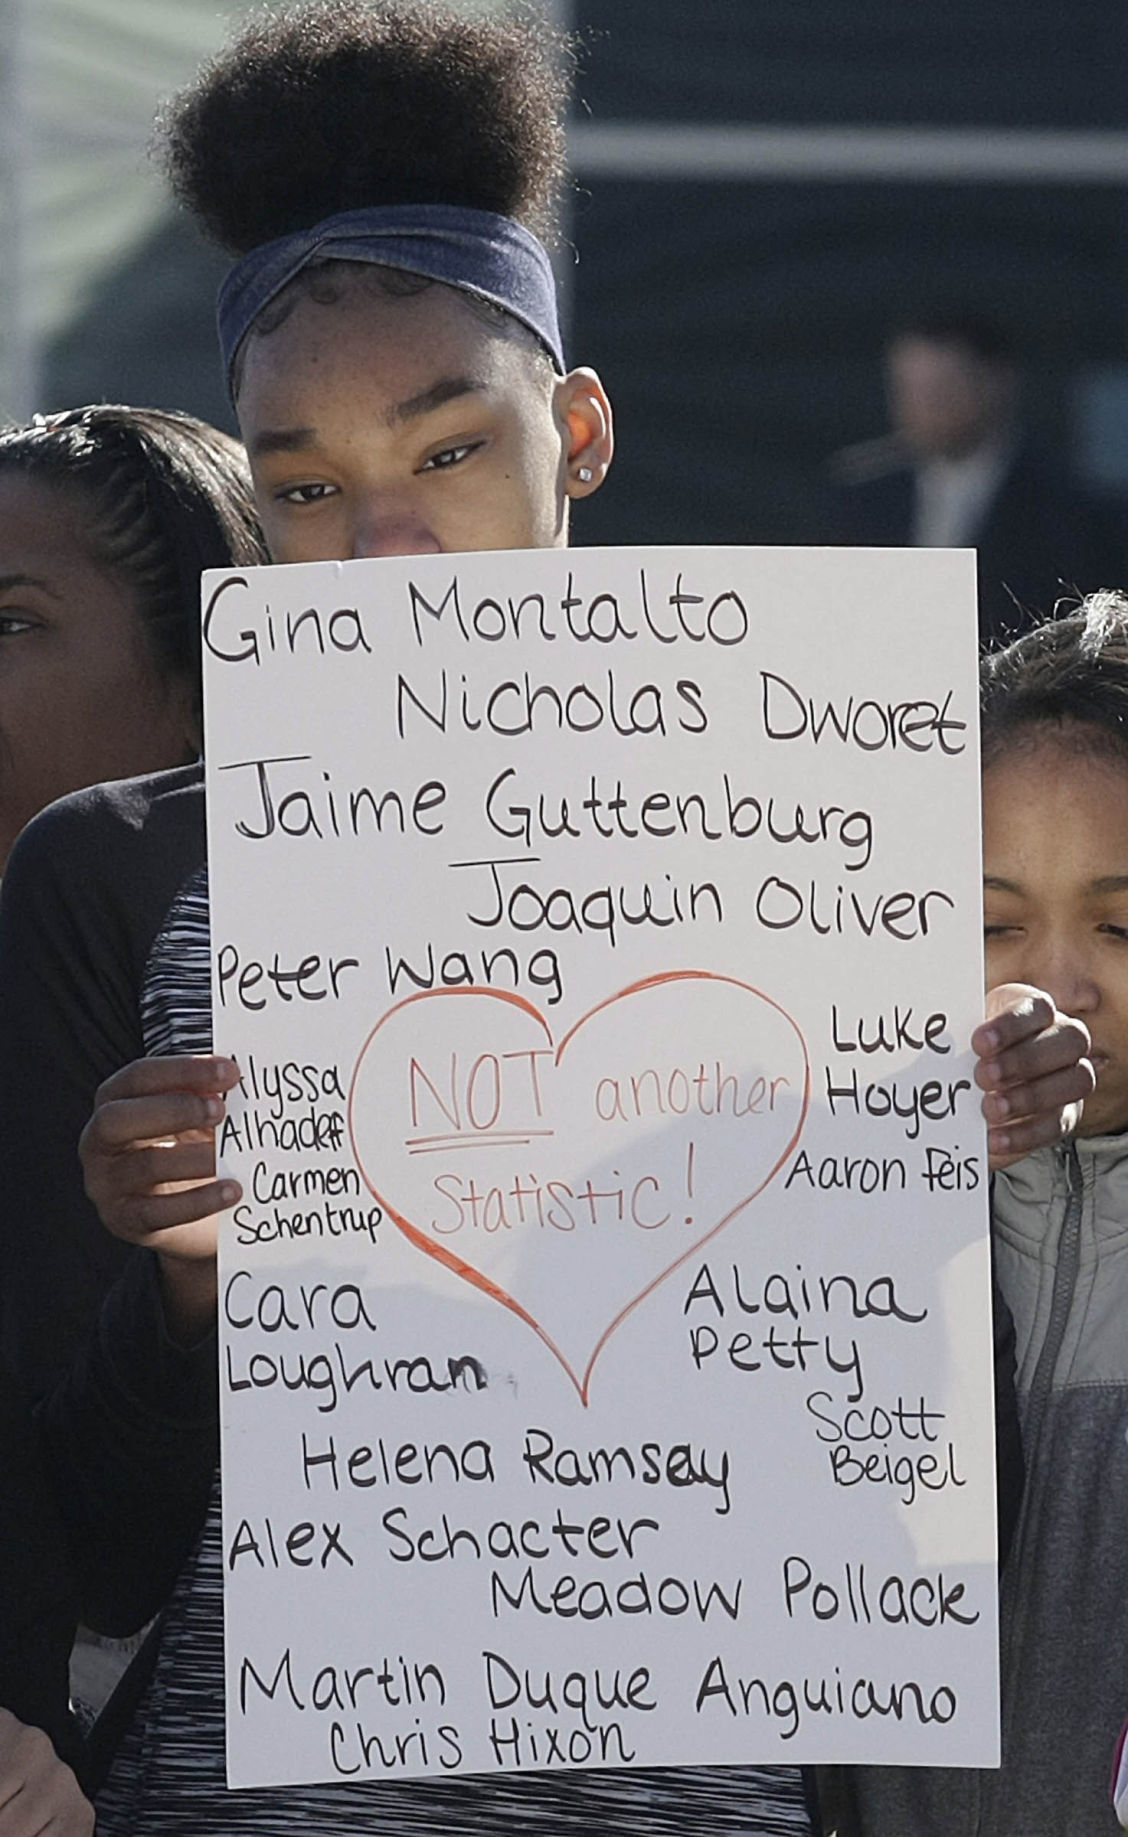 Gina Montalto
Nicholas Dworet
Jaime Guttenburg
Joaquin Oliver
Peter Wang
Luke
Hoyer
Aaron Feis
Alyssa
Alhadeff
Carmen
Schentrup
NOT another
Statistic!
Cara
Loughran
Alaina
Petty
Scott
Beigel
Helena Ramsay
Alex Schacter
Meadow Pollack
Martin Duque Anguiano
Chris Hixon